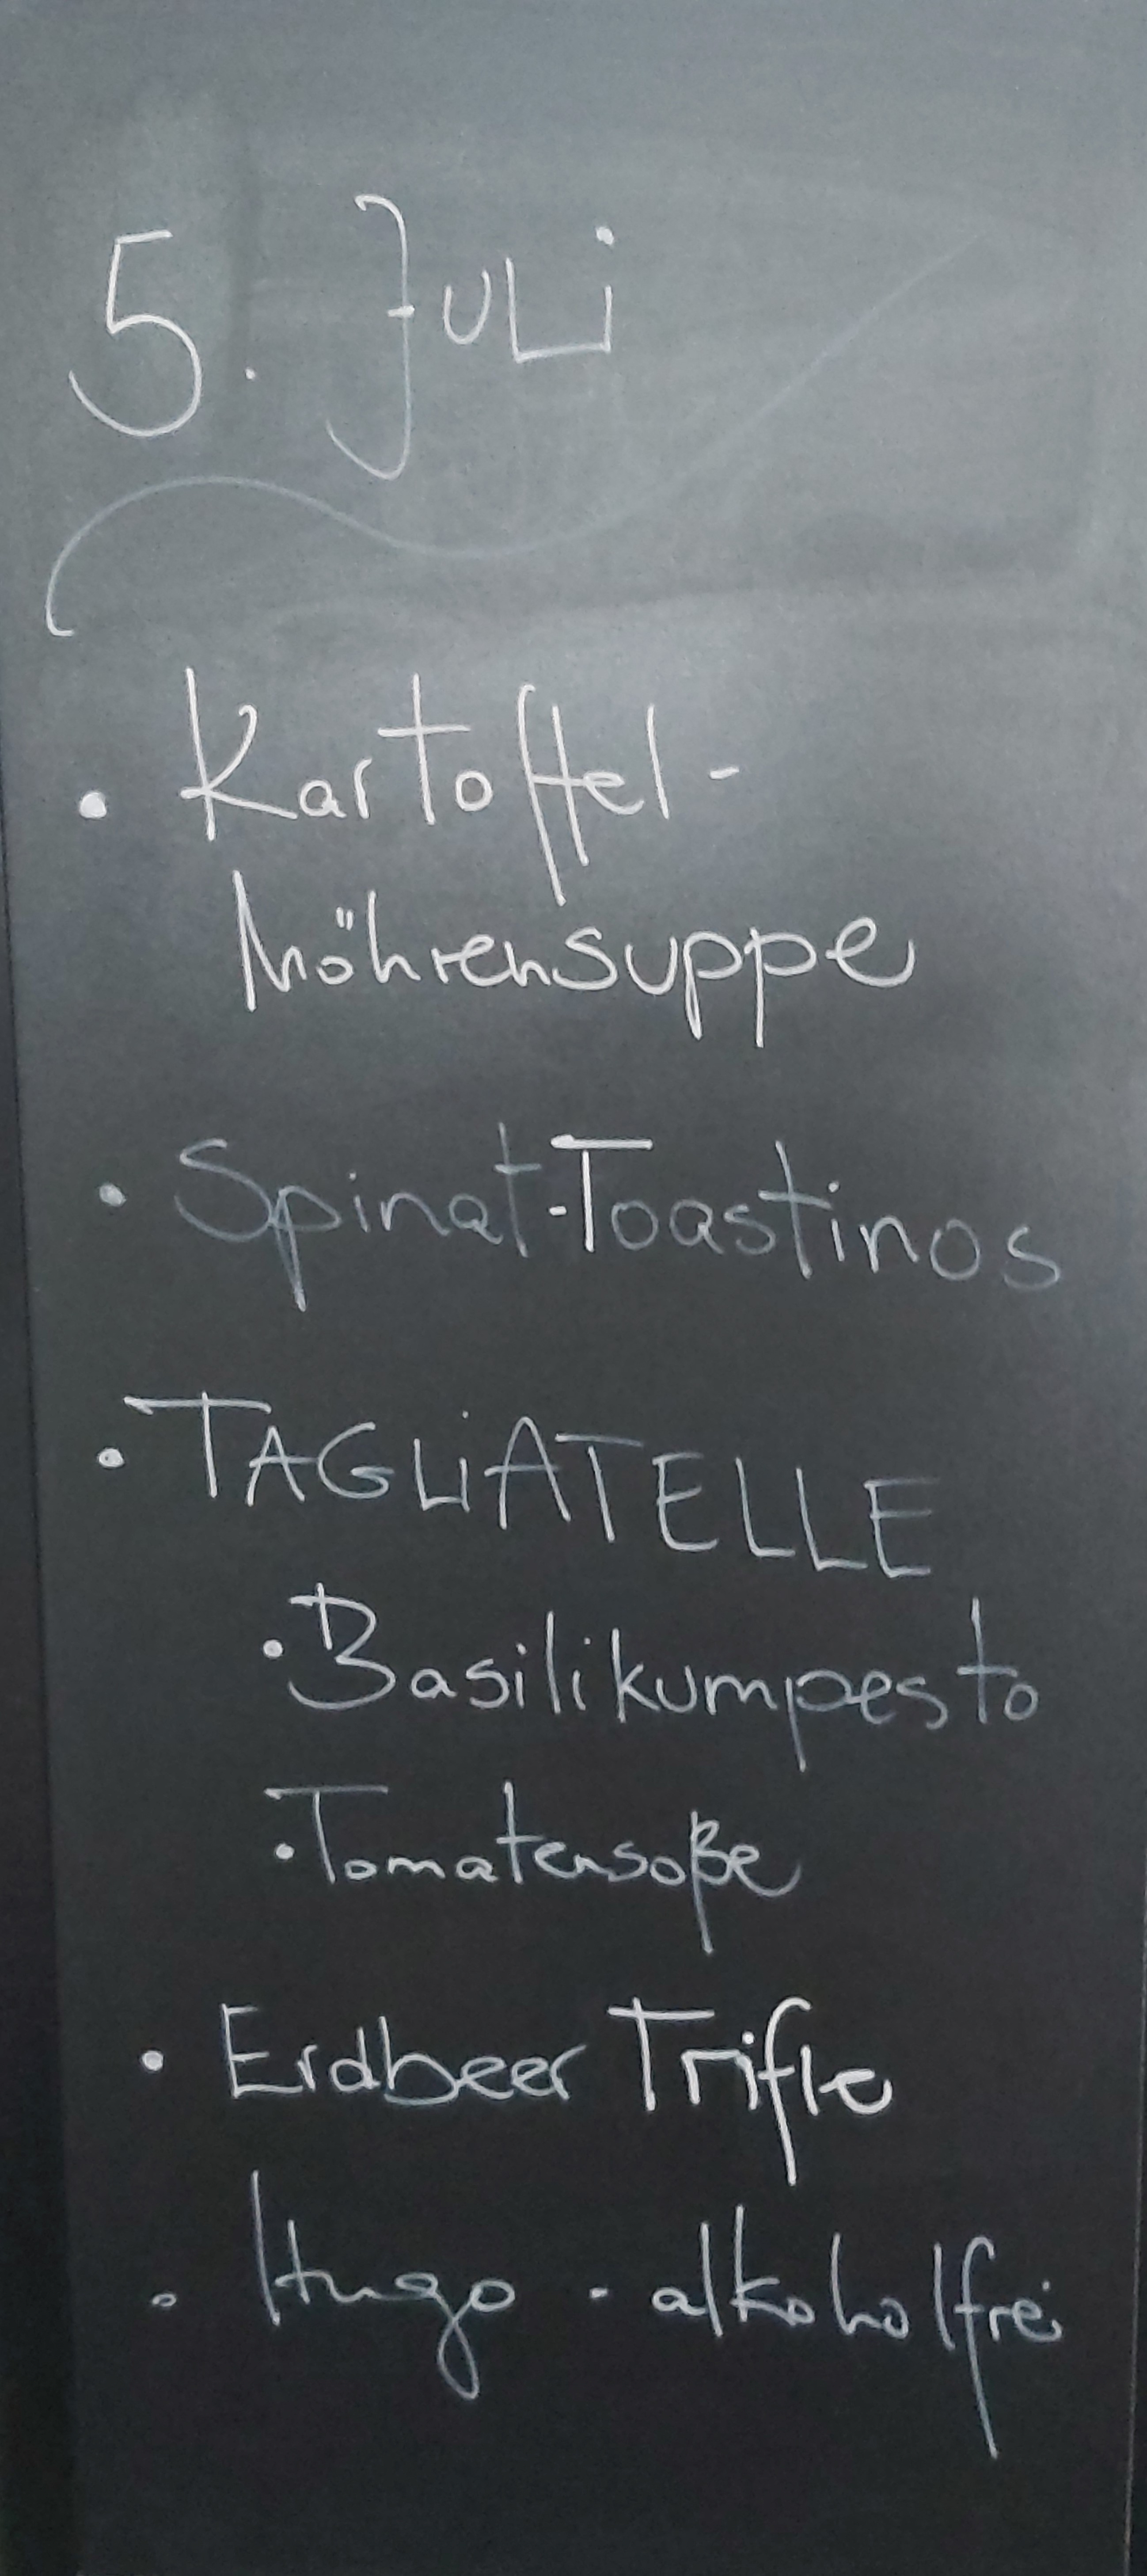 5. Juli
• Kartoffel-
Möhrensuppe
• Spinat-Toastinos
• TAGLiATELLE
• Basilikumpesto
• Tomatensoße
• Erdbeer Trifle
• Hugo - alkoholfrei